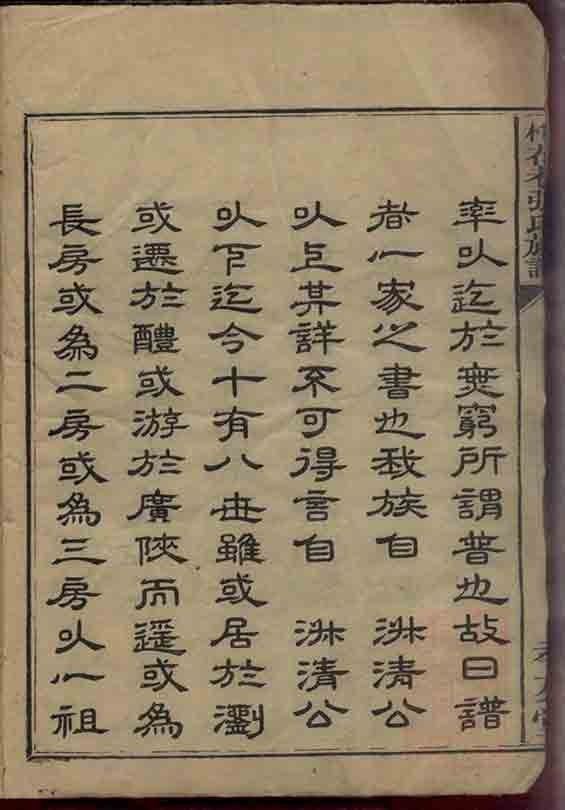 張氏族譜
率以迄於無窮所謂普也故曰譜
者一家之書也我族自 清公
以上其詳不可得言自 清公
以下迄今十有八世雖或居於瀏
或遷於醴或游於廣陝而遥或為
長房或為二房或為三房以一祖